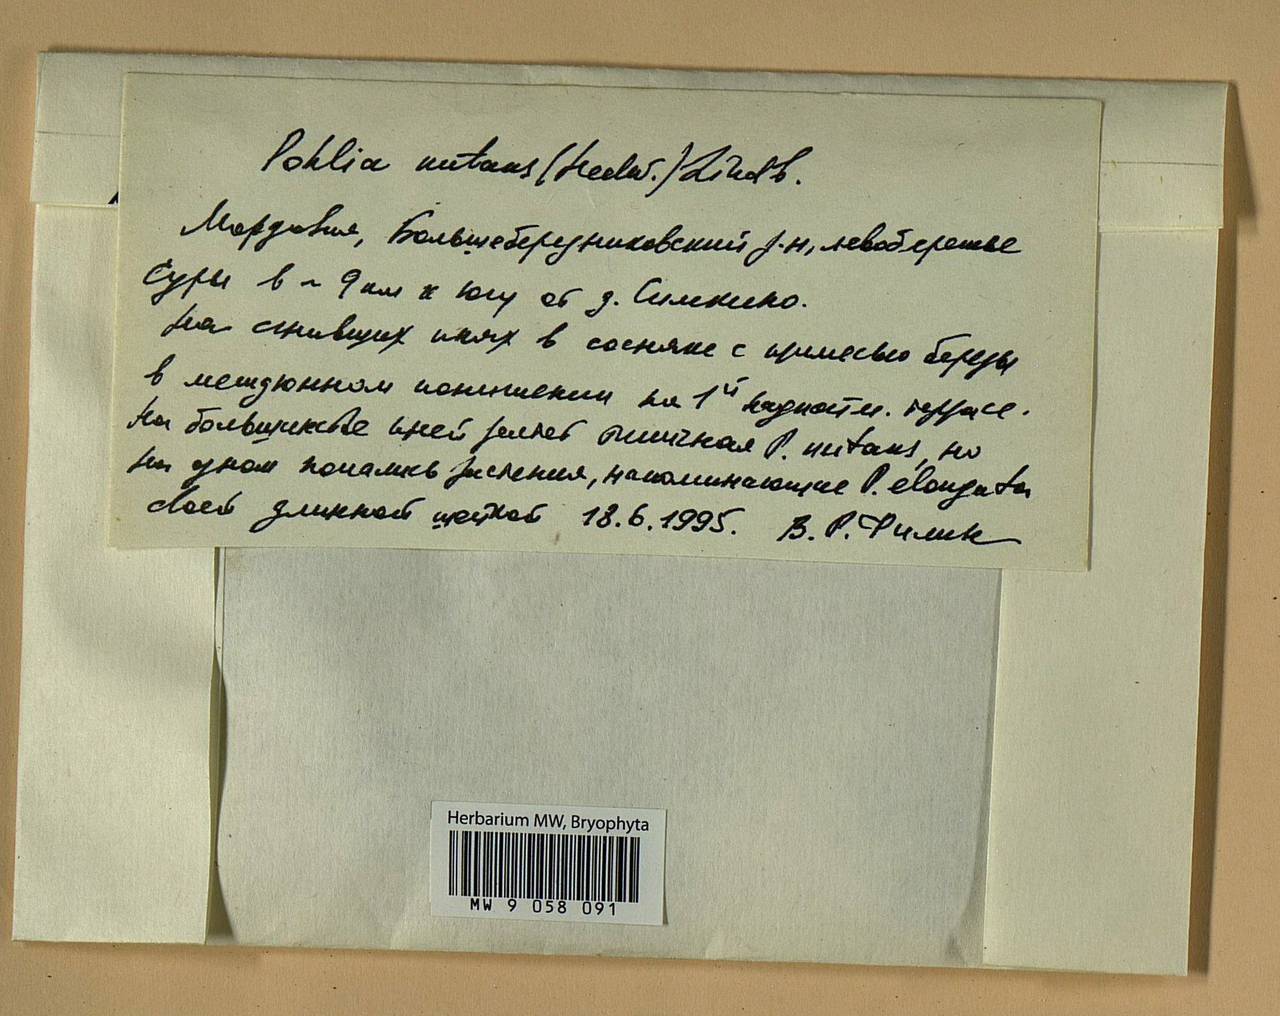 Pohlia nutans (Hedw.) Lindb.
Мордовия, Большеберезниковский р-н, левобережье
Суры в ~ 9 км к югу от д. Симкино.
На сгнивших пнях в сосняке с примесью березы
в междюнном понижении на 1й надпойм. террасе.
На большинстве пней растет типичная P. nutans, но
на одном попались растения, напоминающие P. elongata
своей длинной щеткой 18.6.1995. В. Р. Филин
Herbarium MW, Bryophyta
MW 9 058 091